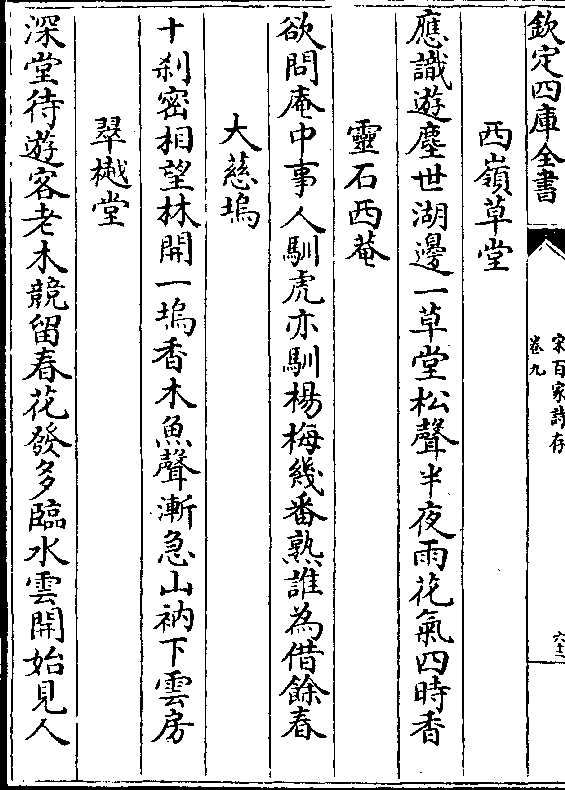 欽定四庫全書
宋百家詩存
卷九
六十二
西嶺草堂
應識遊塵世湖邊一草堂松聲半夜雨花氣四時香
靈石西菴
欲問庵中事人馴虎亦馴楊梅幾番熟誰為借餘春
大慈塢
十刹密相望林開一塢香木魚聲漸急山衲下雲房
翠樾堂
深堂待遊客老木競留春花發多臨水雲開始見人